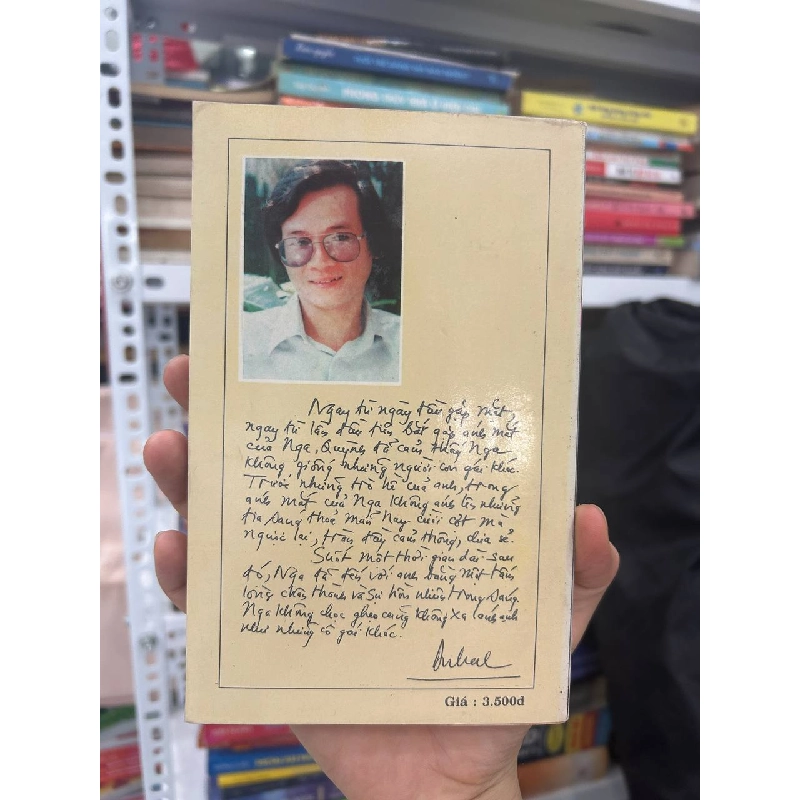 Ngay từ ngày đầu gặp mặt,
ngay từ lần đầu tiên bắt gặp ánh mắt
của Nga, Quỳnh đã cảm thấy Nga
không giống những người con gái khác.
Trước những trò hề của anh, trong
ánh mắt của Nga không ánh lên những
tia sáng thoả mãn hay cười cợt mà
ngược lại, tràn đầy cảm thông, chia sẻ.
Suốt một thời gian dài sau
đó, Nga đã đến với anh bằng một tấm
lòng chân thành và sự hồn nhiên trong sáng
Nga không chọc ghẹo cũng không xa lánh anh
như những cô gái khác.
Giá : 3.500đ